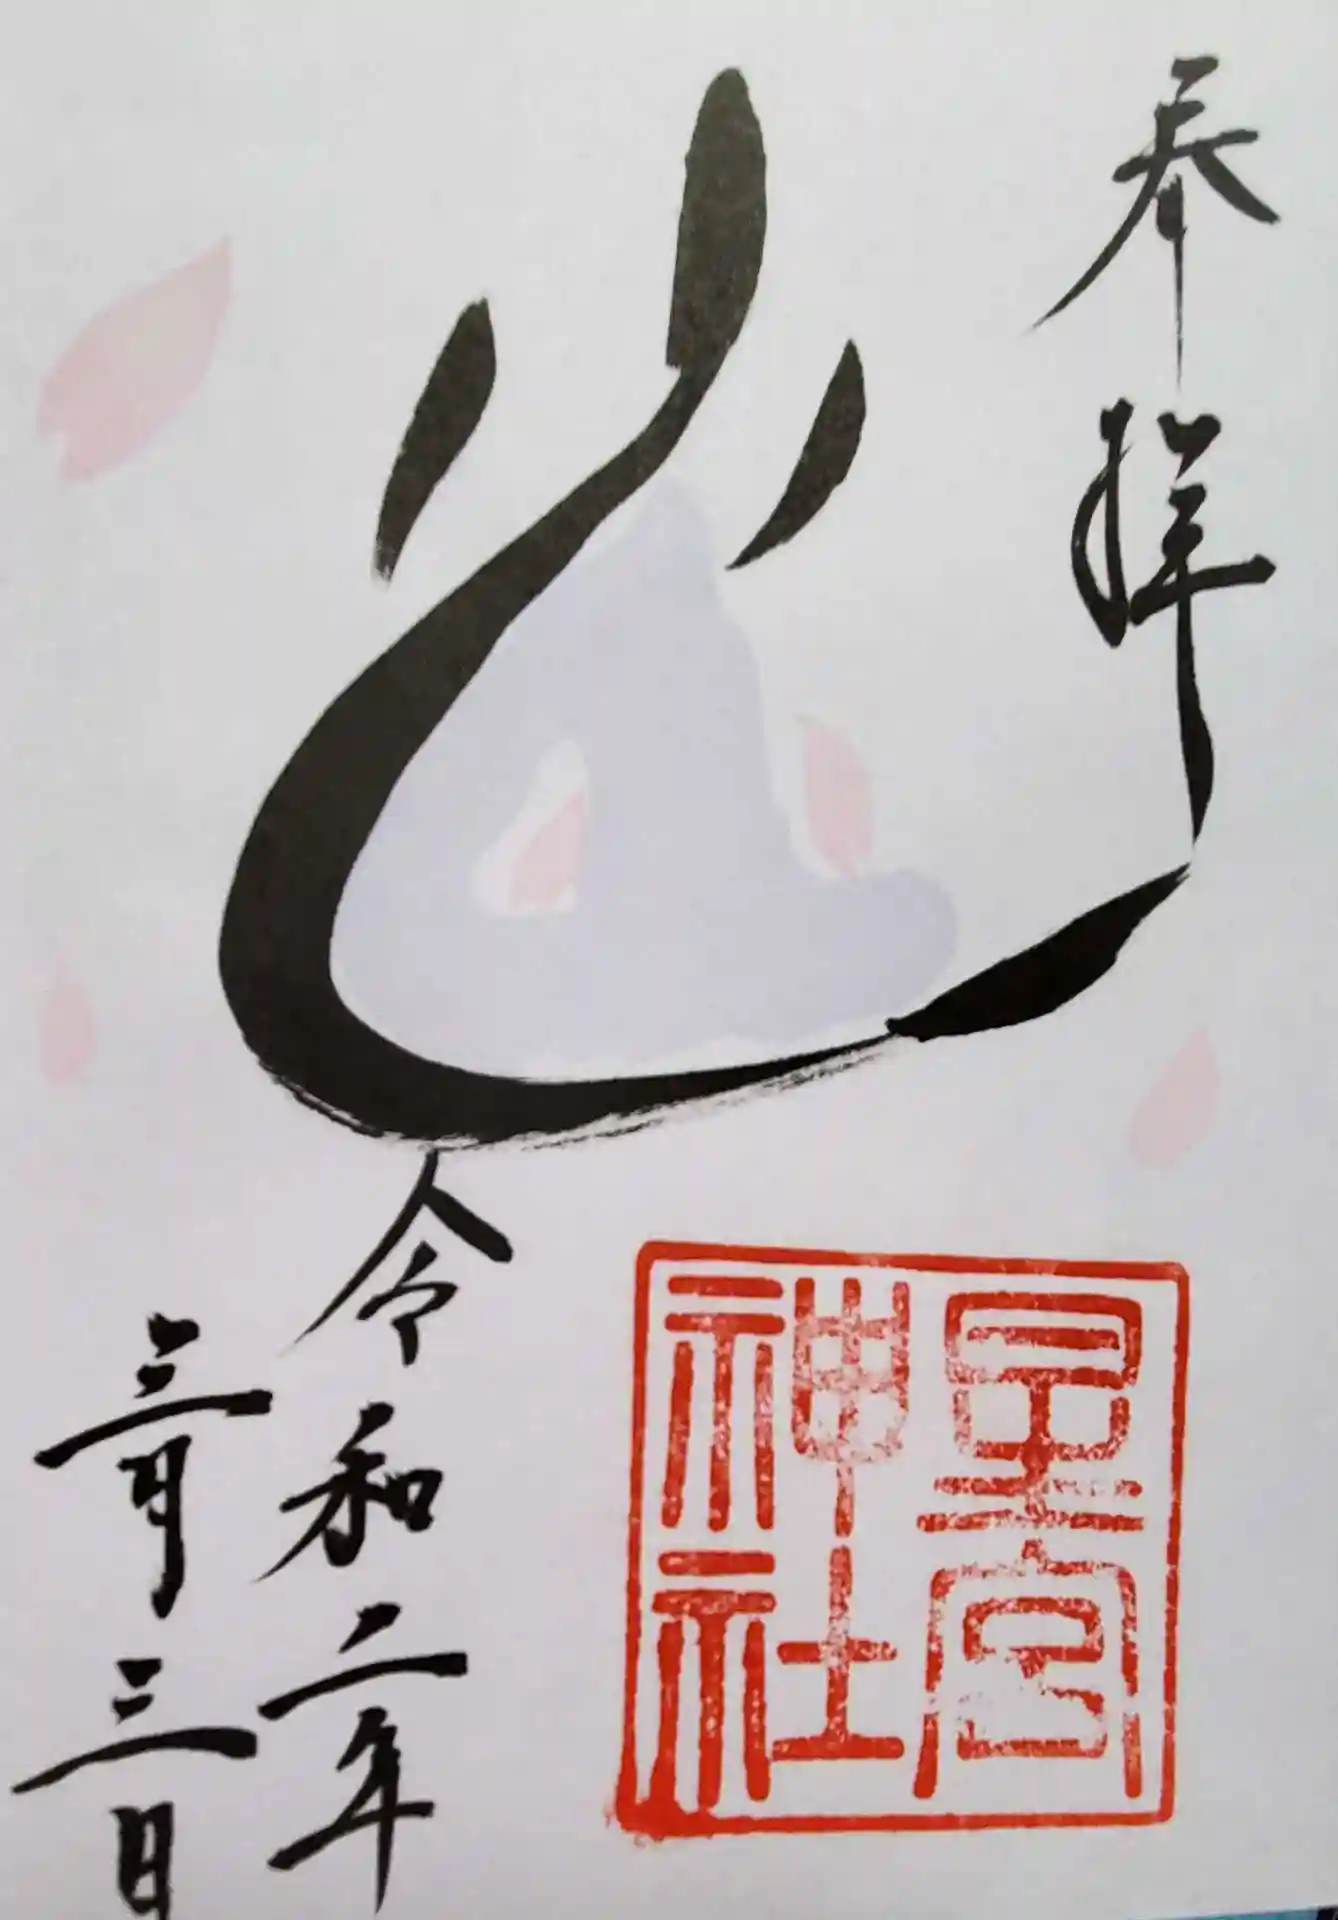 奉拝
星宮
神社
令和二年
三月三日